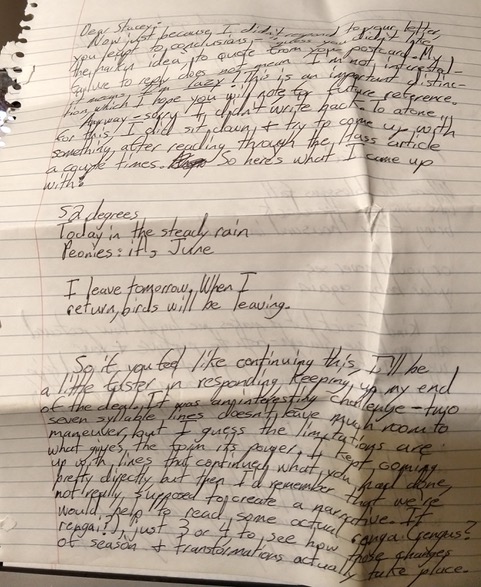 Dear Stacey-
Now just because I didn't respond to your letter,
you leapt to conclusions - guess you didn't like
the haiku idea, to quote from your postcard. My
to reply does not mean I'm not interested -
it means I'm lazy! This is an important distinc-
tion which I hope you will note for future reference.
Anyway - sorry I didn't write back. To atone
for this, I did sit down & try to come up with
something after reading through the Hass article
a couple times. So here's what I came up
with:
52 degrees
Today in the steady rain
Peonies: it's June
I leave tomorrow. When I
return, birds will be leaving.
So if you feel like continuing this, I'll be
a little faster in responding, keeping up my end
of the deal. It was an interesting challenge - two
seven syllable lines doesn't leave much room to
maneuver, but I guess the limitations are
what gives the form its power. I kept coming
up with lines that continued what you had done,
pretty directly but then I'd remember that we're
not really supposed to create a narrative. It
would help to read some actual renga (rengas?
rengai?), just 3 or 4 to see how those changes
of season & transformations actually take place.